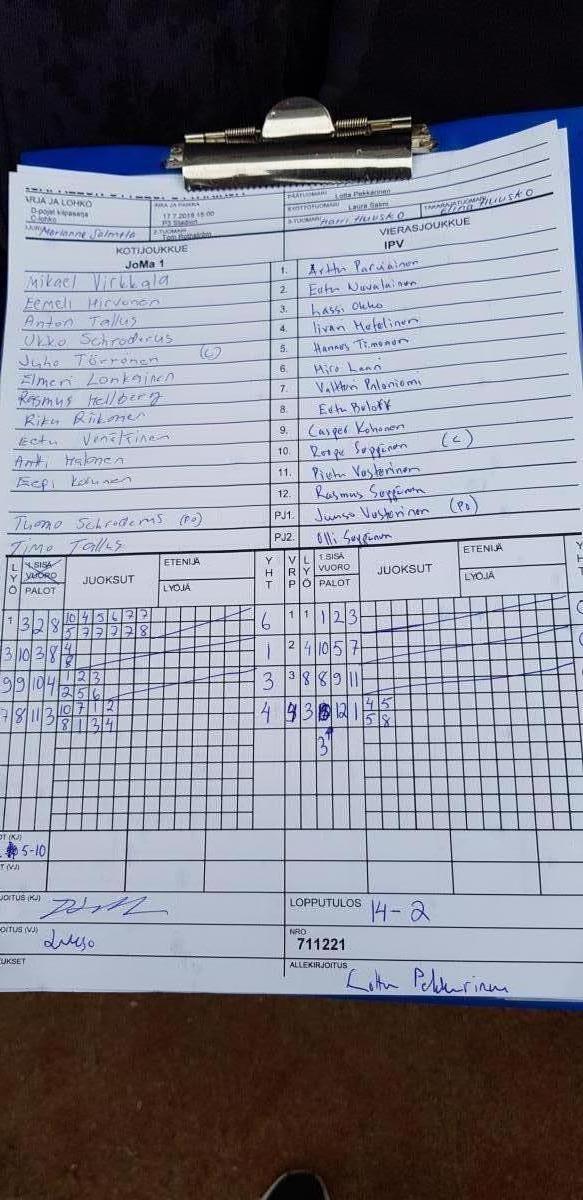 ARJA JA LOHKO
D-pojat kilpasarja
C-lohko
AIKA JA PAIKKA
17.7.2018 15:00
P3 Stadion
Lotta Pekkarinen
Laura Salmi
Marianne Salmela
2-TUOMARI
3-TUOMARI Harri Huusko
TAKARAJATUOMARI Elina Huusko
KOTIJOUKKUE
VIERASJOUKKUE
JoMa 1
IPV
Mikael Virkkala 1. Arttu Parviainen
Eemeli Hirvonen 2. Eetu Nuvalainen
Anton Tallus 3. Lassi Okko
Ukko Schroderus 4. Iivari
Juho Törrönen (C) 5. Hannes Timonen
Elmeri Lonkainen 6. Miro Laari
Rasmus Hellberg 7. Valtteri Paloniemi
Riku Riikonen 8. Eetu
Eetu 9. Casper Kohonen
Antti Halonen 10. Roope Seppänen (C)
Eepi 11. Pietu Vesterinen
12. Rasmus Seppänen
Tuomo Schroderus (PJ) PJ1. Juuso Vesterinen (PJ)
Timo Tallus PJ2. Olli Seppänen
LYÖ 1.SISÄ VUORO PALOT JUOKSUT ETENIJÄ LYÖJÄ YHT VRP LYÖ 1.SISÄ VUORO PALOT JUOKSUT ETENIJÄ LYÖJÄ
1 3 2 8 10 4 5 6 7 7 6 1 1 1 2 3
5 7 7 7 7 8
3 10 3 8 4 1 2 4 10 5 7
8
9 9 10 4 1 2 3 3 3 8 8 9 11
2 5 6
7 8 11 3 10 7 1 2 4 4 3 12 1 4 5
8 1 3 4 5 8
3
5-10
LOPPUTULOS 14-2
NRO
711221
ALLEKIRJOITUS
Lotta Pekkarinen